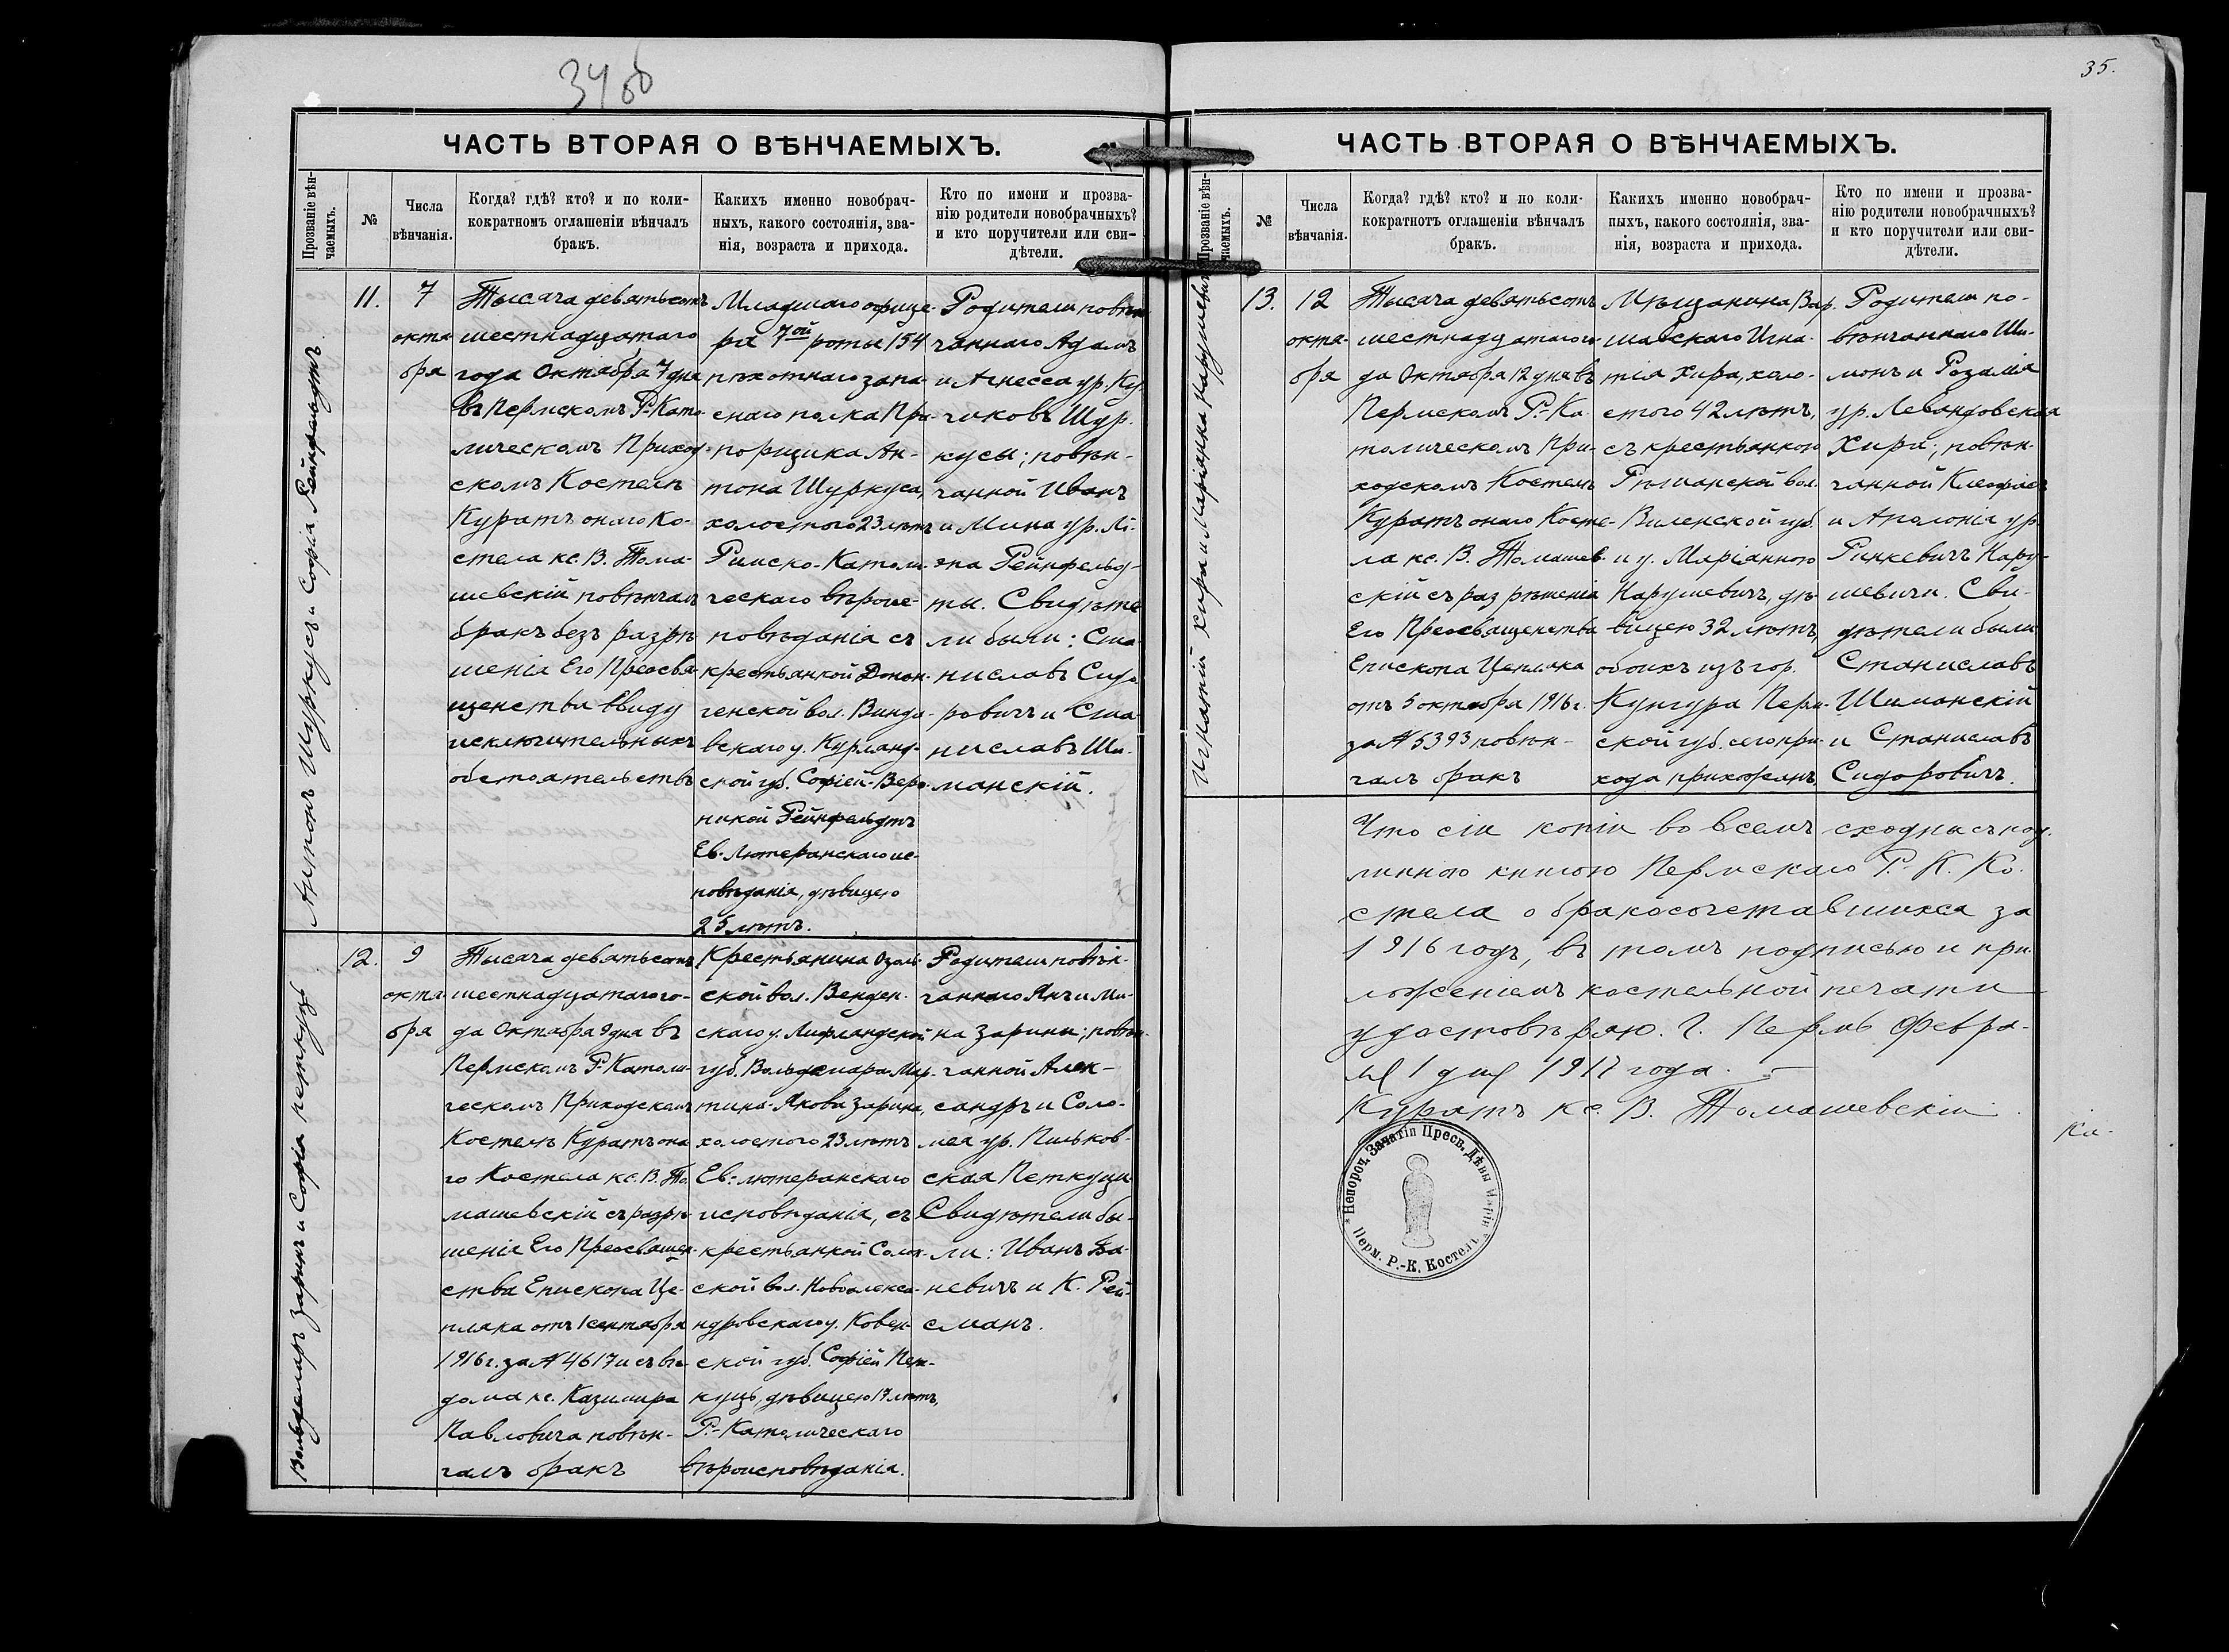 34 об
ЧАСТЬ ВТОРАЯ О ВѢНЧАЕМЫХЪ.
Прозваніе вѣн-
чаемыхъ.
№
Числа
вѣнчанія.
Когда? гдѣ? кто? и по коли-
кократномъ оглашеніи вѣнчалъ
бракъ.
Какихъ именно новобрач-
ныхъ, какого состоянія, зва-
нія, возраста и прихода.
Кто по имени и прозва-
нію родители новобрачныхъ?
и кто поручители или сви-
дѣтели.
Антонъ Шуркусъ и Софія Рейнфельдтъ
11.
7
октя
бря
Тысяча девятьсотъ
шестнадцатаго
года Октября 7 дня
въ Пермскомъ Р.-Като-
лическомъ Приход-
скомъ Костелѣ
Куратъ онаго Ко-
стела кс. В. Тома-
шевскій повѣнчалъ
бракъ безъ разрѣ
шенія Его Преосвя-
щенства ввиду
исключительныхъ
обстоятельствъ
Младшаго офице-
ра 7ой роты 154
пѣхотнаго запа-
снаго полка Пра-
порщика Ан-
тона Шуркуса,
холостого 23 лѣтъ
Римско-Католи-
ческаго вѣроис-
повѣданія съ
крестьянкой Донан-
генской вол. Винда-
вскаго у. Курлянд-
ской губ. Софіей-Веро-
никой Рейнфельдтъ
Ев.-Лютеранскаго ис-
повѣданія, дѣвицею
25 лѣтъ.
Родители повѣн
чаннаго Адамъ
и Агнесса ур. Ку-
чиковъ Шур-
кусы; повѣн-
чанной Иванъ
и Мина ур. Лі-
эпа Рейнфельд-
ты. Свидѣте
ли были: Ста-
ниславъ Сидо-
ровичъ и Ста-
ниславъ Ши-
манскій.
Вольдемаръ Заринъ и Софія Петкуць
12.
9
октя
бря
Тысяча девятьсотъ
шестнадцатаго го-
да Октября 9 дня въ
Пермскомъ Р.-Католи-
ческомъ Приходскомъ
Костелѣ Куратъ она
го Костела кс. В. То-
машевскій съ разрѣ-
шенія Его Преосвящен-
ства Епископа Це-
пляка отъ 1 сентября
1916 г. за № 4617 и съ вѣ-
дома кс. Казимира
Павловича повѣн-
чалъ бракъ
Крестьянина Озоль-
ской вол. Венден-
скаго у. Лифляндской
губ. Вольдемара-Мар-
тина-Якова Зарина,
холостого 23 лѣтъ
Ев.-лютеранскаго
исповѣданія, съ
крестьянкой Солок-
ской вол. Новоалекса-
ндровскаго у. Ковен-
ской губ. Софіей Пет-
куць, дѣвицею 17 лѣтъ,
Р.-Католическаго
вѣроисповѣданія.
Родители повѣн-
чаннаго Янъ и Ми-
на Зарины; повѣн-
чанной Алек-
сандръ и Соло-
мея ур. Пильков-
ская Петкуци
Свидѣтели бы-
ли: Иванъ
невичъ и К. Рей-
сманъ.
35.
ЧАСТЬ ВТОРАЯ О ВѢНЧАЕМЫХЪ.
Прозваніе вѣн-
чаемыхъ.
№
Числа
вѣнчанія.
Когда? гдѣ? кто? и по коли-
кократнотъ оглашеніи вѣнчалъ
бракъ.
Какихъ именно новобрач-
пыхъ, какого состоянія, зва-
нія, возраста и прихода.
Кто по имени и прозва-
нію родители новобрачныхъ?
и кто поручители или сви-
дѣтели.
Игнатій Хира и Маріанна Нарушевичъ
13.
12
октя-
бря
Тысяча девятьсотъ
шестнадцатаго го-
да Октября 12 дня въ
Пермскомъ Р.-Ка-
толическомъ При-
ходскомъ Костелѣ
Куратъ онаго Косте-
ла кс. В. Томашев-
скій съ разрѣшенія
Его Преосвященства
Епископа Цепляка
отъ 5 октября 1916 г.
за № 5393 повѣн-
чалъ бракъ
Мѣщанина Вар-
шавскаго Игна-
тія Хира, холо-
стого 42 лѣтъ,
съ крестьянкою
Рѣшанской вол.
Виленской губ.
и у. Маріанною
Нарушевичъ, дѣ-
вицею 32 лѣтъ,
обоихъ изъ гор.
Кунгура Перм-
ской губ. сего при-
хода прихожанъ.
Родители по-
вѣнчаннаго Ши-
монъ и Розалія
ур. Левандовская
Хира; повѣн-
чанной Клеофасъ
и Аполонія ур.
Ринкевичъ Нару-
шевичи. Сви-
дѣтели были
Станиславъ
Шиманскій
и Станиславъ
Сидоровичъ.
Что сіи копіи во всемъ сходны съ под-
линною книгою Пермскаго Р.-К. Ко-
стела о бракосочетавшихся за
1916 годъ, въ томъ подписью и при-
ложеніемъ костельной печати
удостовѣряю. Г. Пермь Февра-
ля 1 дня 1917 года.
Куратъ кс. В. Томашевскій
* Непороч. Зачатія Пресв. Дѣвы Маріи *
Перм. Р.-К. Костелъ
Ка-